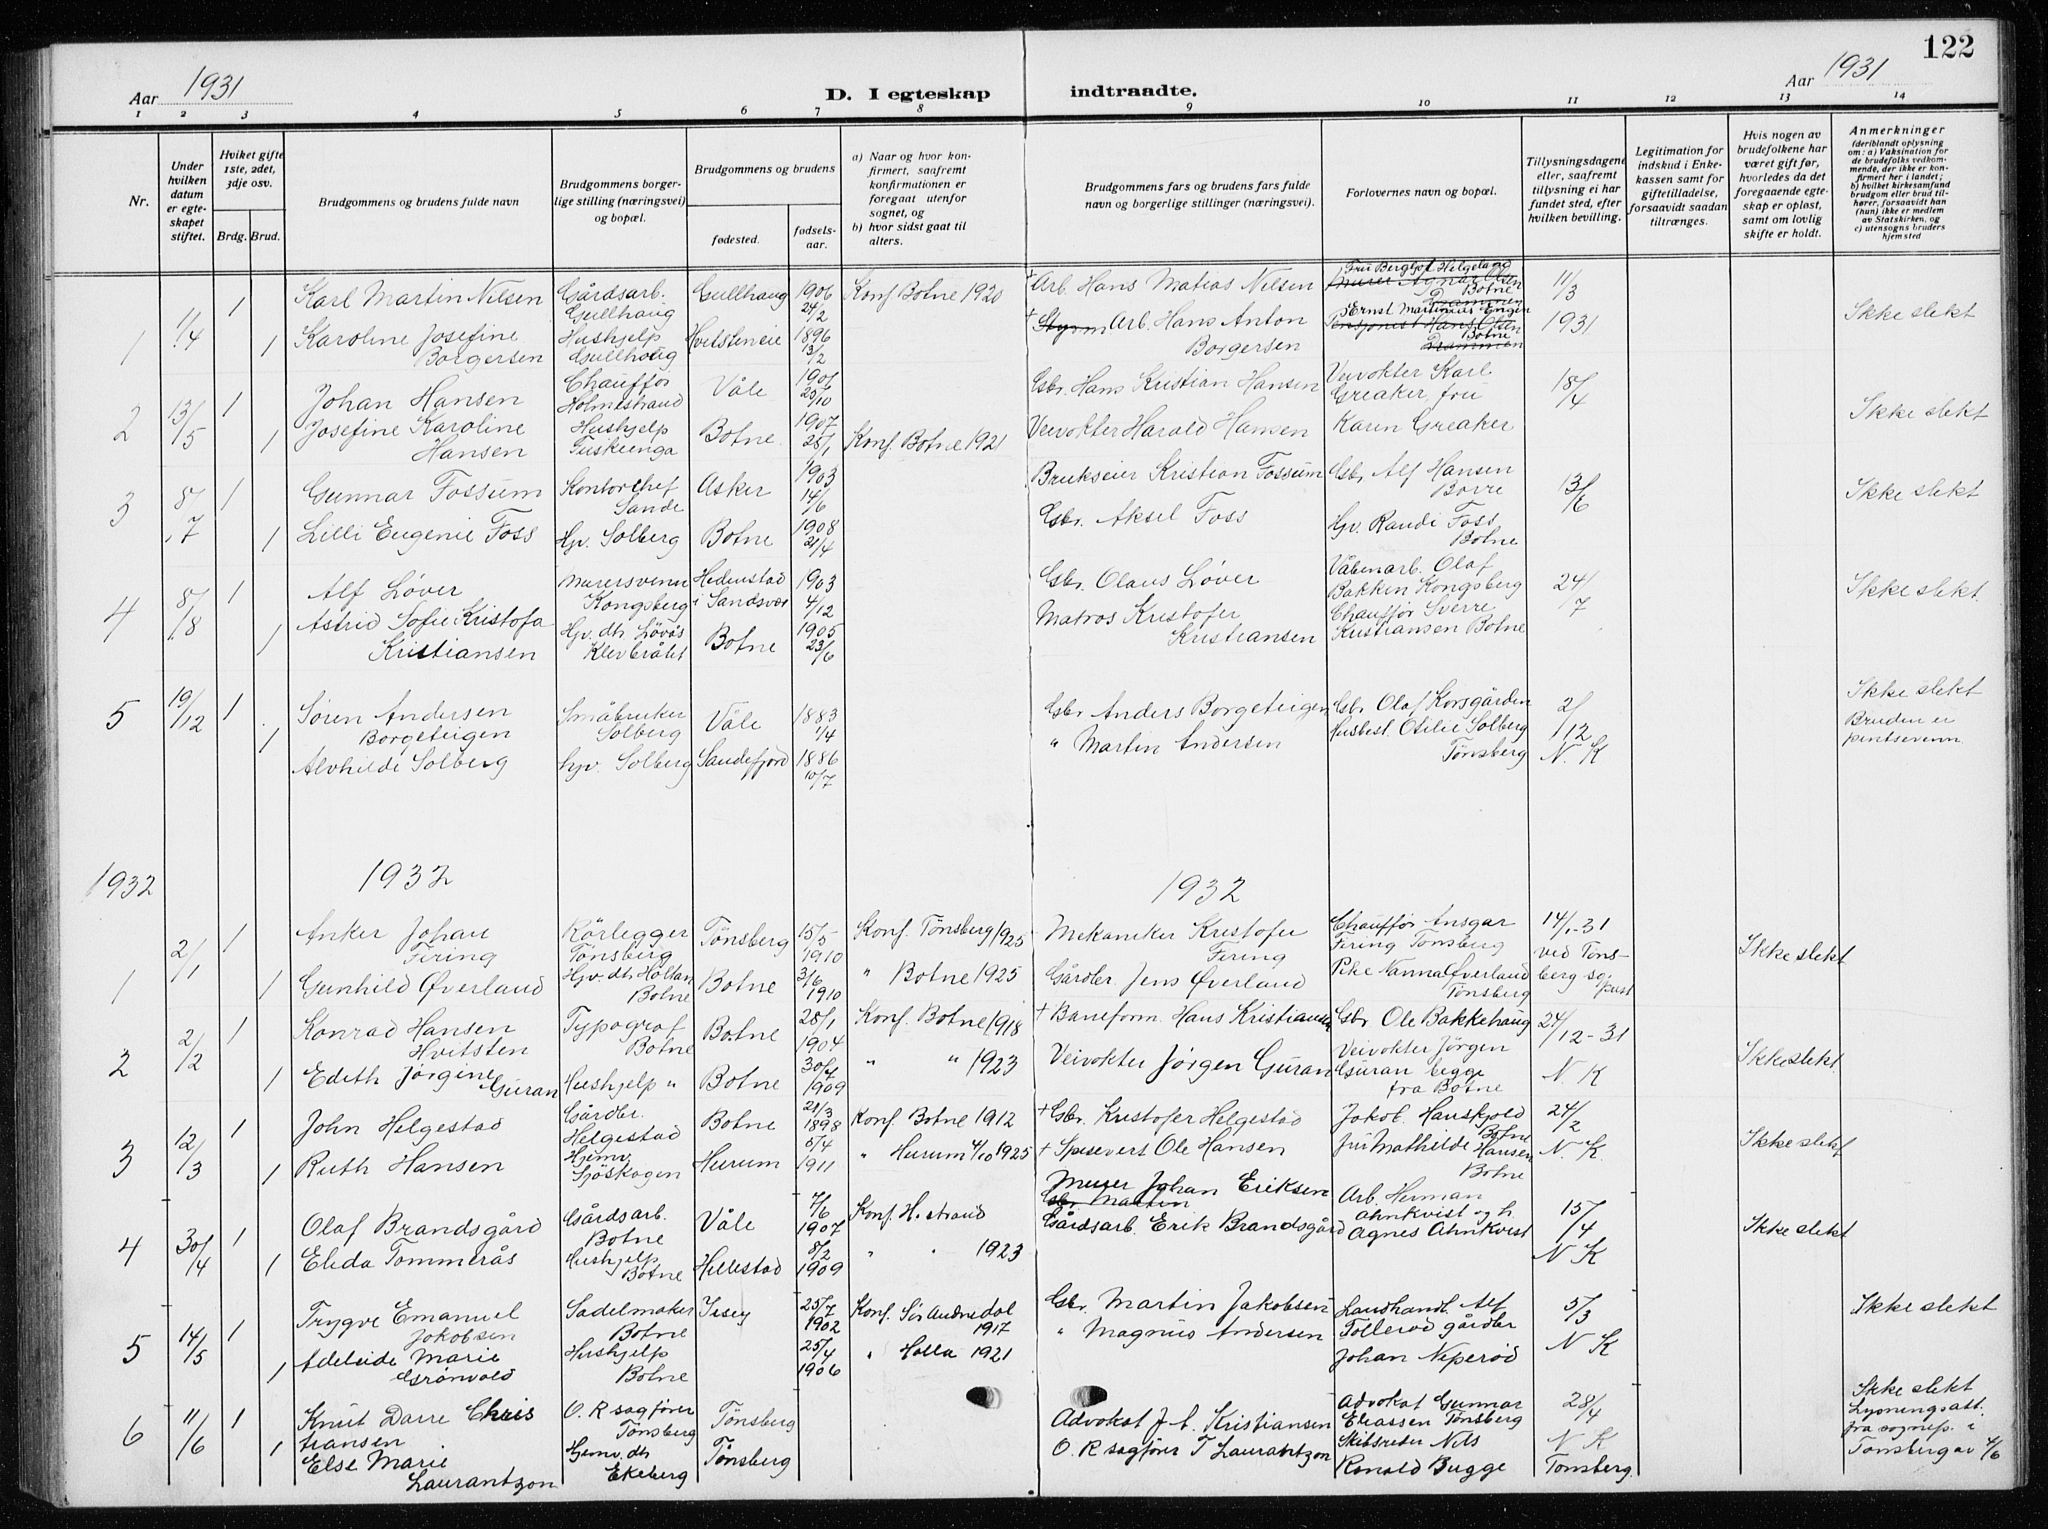 122
Aar 1931
D. I egteskap indtraadte.
Aar 1931
1 2 3 4 5 6 7 8 9 10 11 12 13 14
Nr.
Under hvilken datum er egteskapet stiftet.
Hviket gifte 1ste, 2det, 3dje osv.
Brdg. Brud.
Brudgommens og brudens fulde navn
Brudgommens borgerlige stilling (næringsvei) og bopæl.
Brudgommens og brudens
fødested.
fødselsaar.
a) Naar og hvor konfirmert, saafremt konfirmationen er foregaat utenfor sognet, og
b) hvor sidst gaat til alters.
Brudgommens fars og brudens fars fulde navn og borgerlige stillinger (næringsvei).
Forlovernes navn og bopæl.
Tillysningsdagene eller, saafremt tillysning ei har fundet sted, efter hvilken bevilling.
Legitimation for indskud i Enkekassen samt for giftetilladelse, forsaavidt saadan tiltrænges.
Hvis nogen av brudefolkene har været gift før, hvorledes da det foregaaende egteskap er opløst, samt om lovlig skifte er holdt.
Anmerkninger (deriblandt oplysning om: a) Vaksination for de brudefolks vedkommende, der ikke er konfirmert her i landet; b) hvilket kirkesamfund brudgom eller brud tilhører, forsaavidt han (hun) ikke er medlem av Statskirken, og c) utensogns bruders hjemsted
1 11/4 1 Karl Martin Nilsen Gårdsarb. Gullhaug Gullhaug 1906 24/2 Konf Botne 1920 + Arb. Hans Matias Nilsen Fru Bergljot Helgeland Botne 11/3
1 Karoline Josefine Borgersen Hushjelp Gullhaug Hvitsteneie 1896 13/2 + Styrm Arb. Hans Anton Borgersen Ernst Martinius Engen Botne 1931 Ikke slekt
2 13/5 1 Johan Hansen Chauffør Holmestrand Våle 1901 25/10 Gbr. Hans Kristian Hansen Veivokter Karl Greaker, fru 18/4
1 Josefine Karoline Hansen Hushjelp Fuskeenga Botne 1907 28/1 Konf. Botne 1921 Veivokter Harald Hansen Karen Greaker Ikke slekt
3 8/7 1 Gunnar Fossum Kontorchef Sande Asker 1903 14/6 Brukseier Kristian Fossum Gbr. Alf Hansen Borre 13/6
1 Lilli Eugenie Foss Hjv. Solberg Botne 1908 21/4 Gbr. Aksel Foss Hjv. Randi Foss Botne Ikke slekt
4 8/8 1 Alf Løver Murersvenn Kongsberg Hedenstad i Sandsvær 1903 4/12 Gbr. Olaus Løver Våbenarb. Olaf Bakken Kongsberg 24/7
1 Astrid Sofie Kristofa Kristiansen Hjv. dt. Løvås Klevbråtet Botne 1905 23/6 Matros Kristofer Kristiansen Chauffør Sverre Kristiansen Botne Ikke slekt
5 19/12 1 Søren Andersen Borgeteigen Småbruker Solberg Våle 1883 1/4 Gbr. Anders Borgeteigen Gbr. Olaf Korsgården 2/12
1 Alvhilde Solberg hjv. Solberg Sandefjord 1886 10/7 " Martin Andersen Husbest. Otilie Solberg Tønsberg N. K Ikke slekt Bruden er pinsevenn
1932 1932 1932
1 2/1 1 Anker Johan Firing Rörlegger Tønsberg Tønsberg 15/5 1910 Konf. Tønsberg 1925 Mekaniker Kristofer Firing Chauffør Ansgar Firing Tønsberg 14/1-31
1 Gunhild Øverland Hjv. dt. Holtan Botne Botne 3/6 1910 " Botne 1925 Gårdbr. Jens Øverland Pike Nanna Øverland Tønsberg ved Tønsberg sogneprest Ikke slekt
2 2/2 1 Konrad Hansen Hvitsten Typograf Botne Botne 28/1 1904 Konf. Botne 1918 + Baneform. Hans Kristiansen Gbr Ole Bakkehaug 24/12-31
1 Edith Jørgine Guran Hushjelp " Botne 30/4 1909 " " 1923 Veivokter Jørgen Guran Veivokter Jørgen Guran begge fra Botne N. K Ikke slekt
3 12/3 1 John Helgestad Gårdbr. Helgestad Botne 21/3 1898 Konf Botne 1912 + Gbr. Kristofer Helgestad Jakob Hanskjold Botne 24/2
1 Ruth Hansen Hjemv. Sjöskogen Hurum 5/4 1911 " Hurum 4/10 1925 + Spisevert Ole Hansen fru Mathilde Hansen Botne N. K. Ikke slekt
4 30/4 1 Olaf Brandsgård Gårdsarb. Botne Våle 7/6 1907 Konf. H.strand Murer Johan Eriksen Gbr Martin Arb. Herman Ahnkvist og h. 15/4
1 Elida Tommerås Hushjelp Botne Hillestad 8/2 1909 " " 1923 Gårdsarb. Erik Brandsgård Agnes Ahnkvist N K Ikke slekt
5 14/5 1 Trygve Emanuel Jakobsen Sadelmaker Botne 25/7 1902 Konf. Sör Audnedal 1917 Gbr. Martin Jakobsen Landhandl. Alf Tollerød gårdbr 5/3
1 Adeleide Marie Grönvold Hushjelp Botne 25/4 1906 " Holla 1921 " Magnus Andersen Johan Neperød N K Ikke slekt
6 11/6 1 Knut Darre Christiansen O. R sagfører Tønsberg Tønsberg Advokat J. C. Kristiansen Advokat Gunnar Eliassen Tønsberg 28/4
1 Else Marie Laurantzon Hjemv. dt. Ekeberg Tønsberg O. R sagfører T Laurantzon Skibsreder Nils Ronald Bugge N K Tønsberg Ikke slekt Lysningsatt. fra sognep. i Tønsberg av 4/6